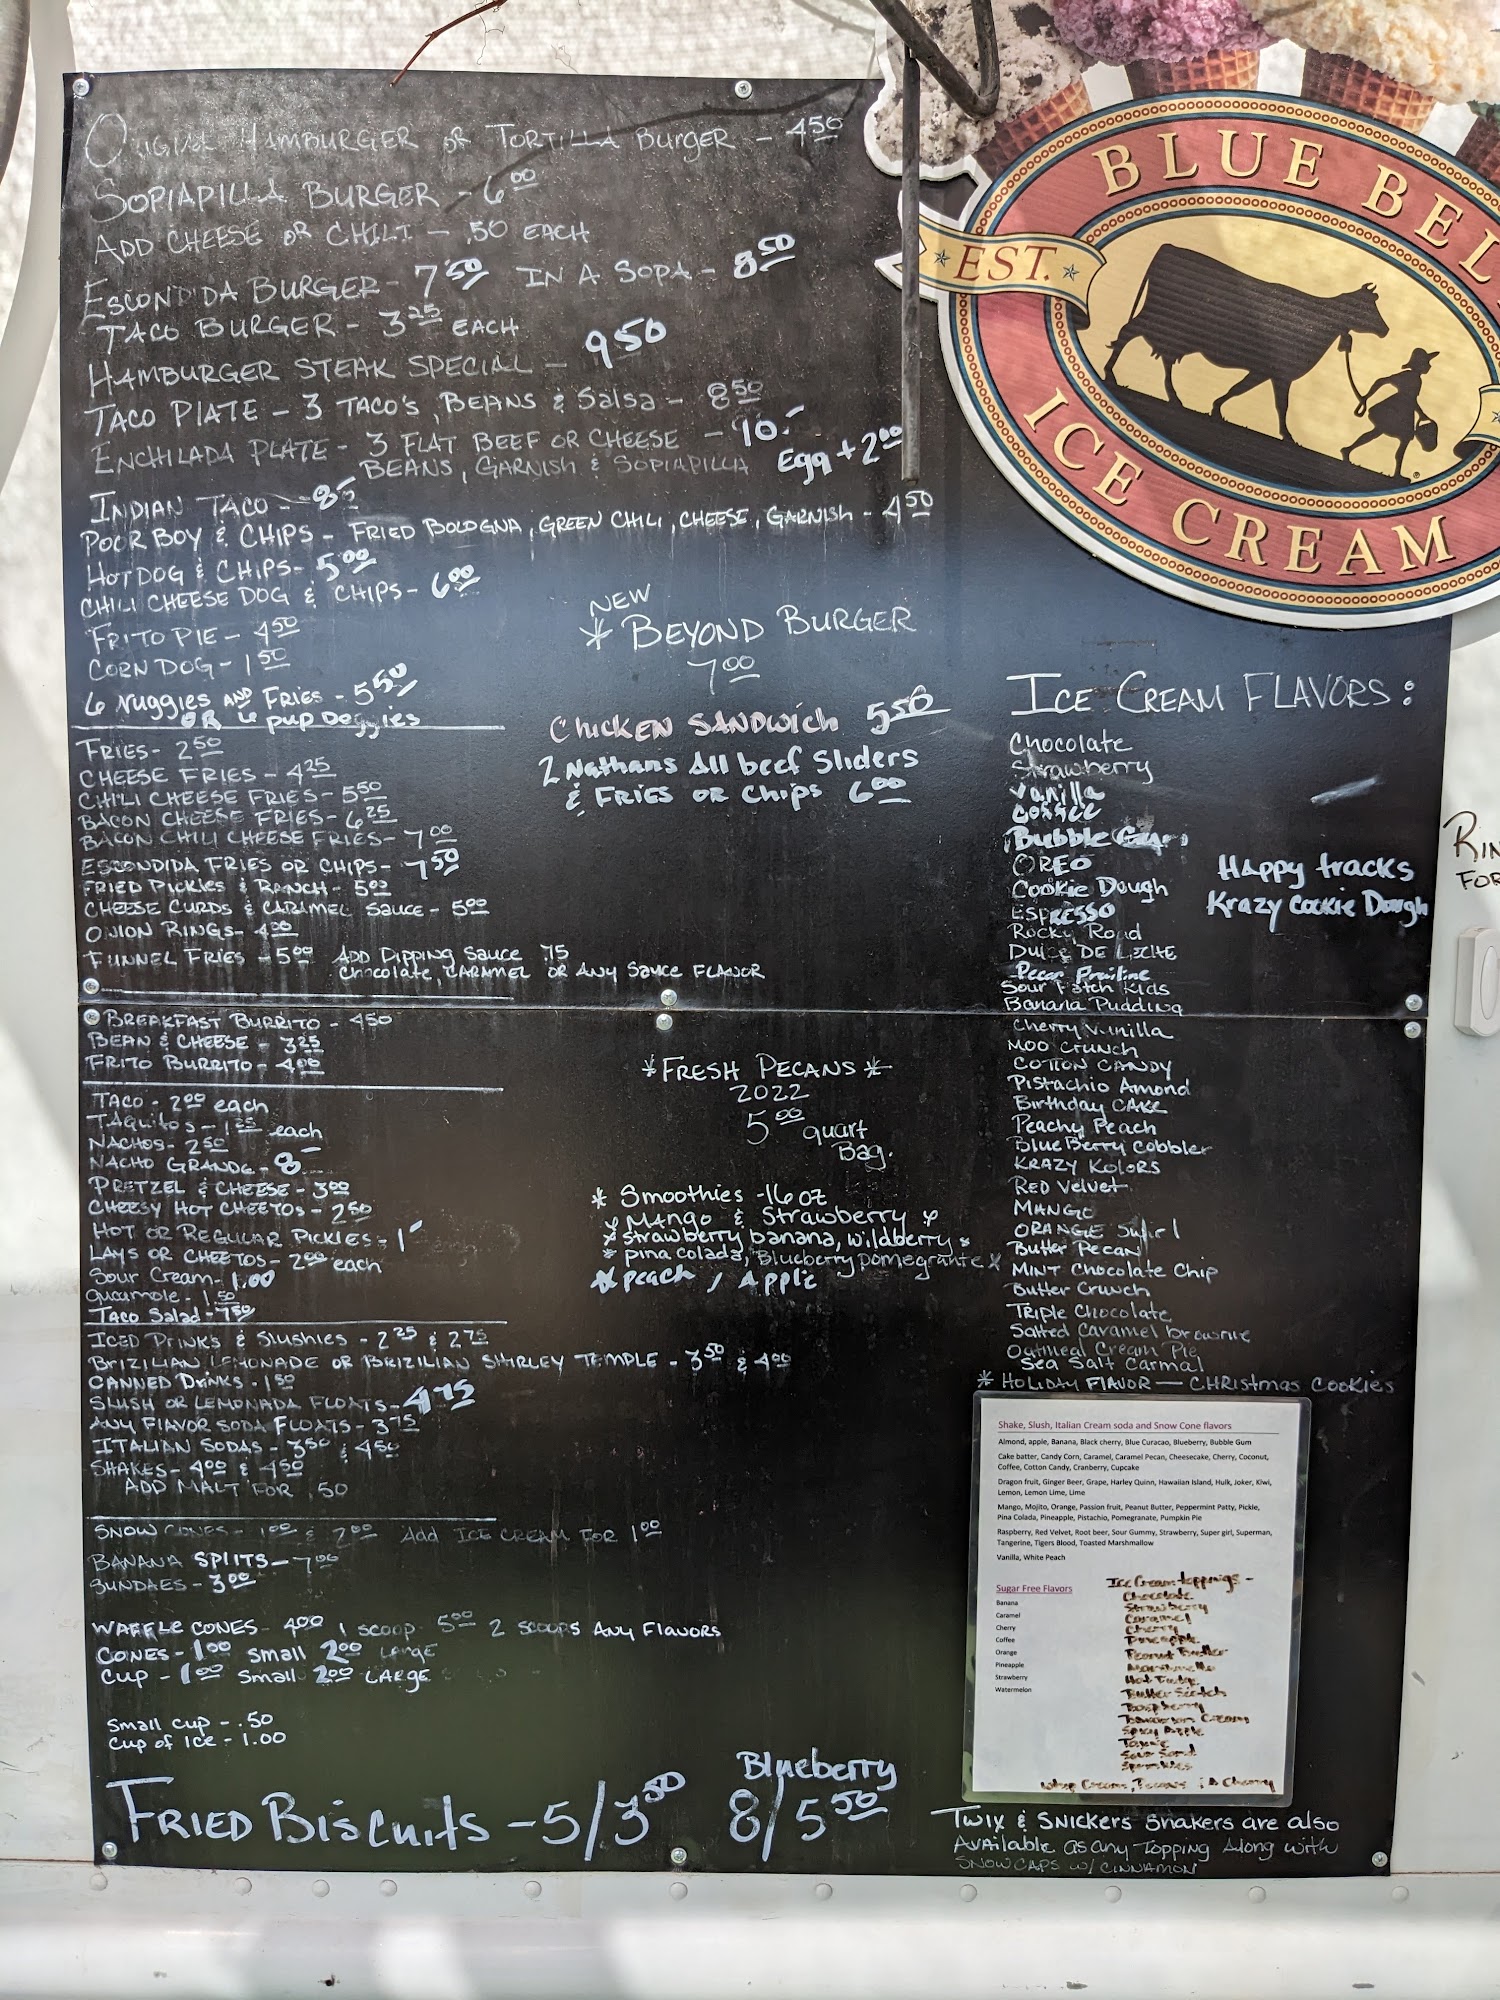 Original Hamburger or Tortilla Burger - 4.50
Sopiapilla Burger - 6.00
Add Cheese or Chili - .50 each
Escondida Burger - 7.50 in a Sopa - 8.50
Taco Burger - 3.25 each
Hamburger Steak Special - 9.50
Taco Plate - 3 Taco's, Beans & Salsa - 8.50
Enchilada Plate - 3 Flat Beef or Cheese - 10.-
Beans, Garnish & Sopiapilla Egg + 2.00
Indian Taco - 8.-
Poor Boy & Chips - Fried Bologna, Green Chili, Cheese, Garnish - 4.50
Hot Dog & Chips - 5.00
Chili Cheese Dog & Chips - 6.00
Frito Pie - 4.50
Corn Dog - 1.50
6 Nuggies and Fries - 5.50
or 6 pup Doggies
Fries - 2.50
Cheese Fries - 4.25
Chili Cheese Fries - 5.50
Bacon Cheese Fries - 6.25
Bacon Chili Cheese Fries - 7.00
Escondida Fries or Chips - 7.50
Fried Pickles & Ranch - 5.00
Cheese Curds & Caramel Sauce - 5.00
Onion Rings - 4.00
Funnel Fries - 5.00 Add Dipping Sauce .75
Chocolate, Caramel or any Sauce Flavor
Breakfast Burrito - 4.50
Bean & Cheese - 3.25
Frito Burrito - 4.00
Taco - 2.00 each
Taquitos - 1.25 each
Nachos - 2.50
Nacho Grande - 8.-
Pretzel & Cheese - 3.00
Cheesy Hot Cheetos - 2.50
Hot or Regular Pickles - 1.-
Lays or Cheetos - 2.00 each
Sour Cream - 1.00
Guacamole - 1.50
Taco Salad - 7.50
Iced Drinks & Slushies - 2.25 & 2.75
Brizilian Lemonade or Brizilian Shirley Temple - 3.50 & 4.00
Canned Drinks - 1.50
Slush or Lemonada Floats - 4.75
Any Flavor Soda Floats - 3.75
Italian Sodas - 3.50 & 4.50
Shakes - 4.00 & 4.50
Add Malt for .50
Snow Cones - 1.00 & 2.00 Add Ice Cream for 1.00
Banana Splits - 7.00
Sundaes - 3.00
Waffle Cones - 4.00 1 scoop 5.00 2 scoops Any Flavors
Cones - 1.00 Small 2.00 Large
Cup - 1.00 Small 2.00 Large
Small cup - .50
Cup of Ice - 1.00
Fried Biscuits - 5/3.50
Blueberry
8/5.50
New
* Beyond Burger
7.00
Chicken Sandwich 5.50
2 Nathans All beef Sliders
& Fries or Chips 6.00
* Fresh Pecans *
2022
5.00 quart
Bag.
* Smoothies - 16 oz
* Mango & Strawberry *
* strawberry banana, wildberry *
* pina colada, Blueberry pomegranite *
* peach, Apple
BLUE BEL
EST.
ICE CREAM
Ice Cream Flavors:
Chocolate
Strawberry
Vanilla
Coffee
Bubble Gum
Oreo
Cookie Dough
Espresso
Rocky Road
Dulce De Leche
Pecan Praline
Sour Patch Kids
Banana Pudding
Cherry Vanilla
Moo Crunch
Cotton Candy
Pistachio Amond
Birthday Cake
Peachy Peach
Blue Berry Cobbler
Krazy Kolors
Red Velvet
Mango
Orange Swirl
Butter Pecan
Mint Chocolate Chip
Butter Crunch
Triple Chocolate
Salted Caramel brownie
Oatmeal Cream Pie
Sea Salt Carmal
* Holiday Flavor — Christmas Cookies
Happy tracks
Krazy Cookie Dough
Rin
For
Shake, Slush, Italian Cream soda and Snow Cone flavors
Almond, apple, Banana, Black cherry, Blue Curacao, Blueberry, Bubble Gum
Cake batter, Candy Corn, Caramel, Caramel Pecan, Cheesecake, Cherry, Coconut,
Coffee, Cotton Candy, Cranberry, Cupcake
Dragon fruit, Ginger Beer, Grape, Harley Quinn, Hawaiian Island, Hulk, Joker, Kiwi,
Lemon, Lemon Lime, Lime
Mango, Mojito, Orange, Passion fruit, Peanut Butter, Peppermint Patty, Pickle,
Pina Colada, Pineapple, Pistachio, Pomegranate, Pumpkin Pie
Raspberry, Red Velvet, Root beer, Sour Gummy, Strawberry, Super girl, Superman,
Tangerine, Tigers Blood, Toasted Marshmallow
Vanilla, White Peach
Sugar Free Flavors
Banana
Caramel
Cherry
Coffee
Orange
Pineapple
Strawberry
Watermelon
Ice Cream toppings -
Chocolate
Strawberry
Caramel
Cherry
Pineapple
Peanut Butter
Marshmello
Hot Fudge
Butter Scotch
Raspberry
Bavarian Cream
Spicy Apple
Sour Sand
Sprinkles
Whip Cream, Pecans & A Cherry
Twix & Snickers Shakers are also
Available as any Topping Along with
Snow Caps w/ Cinnamon